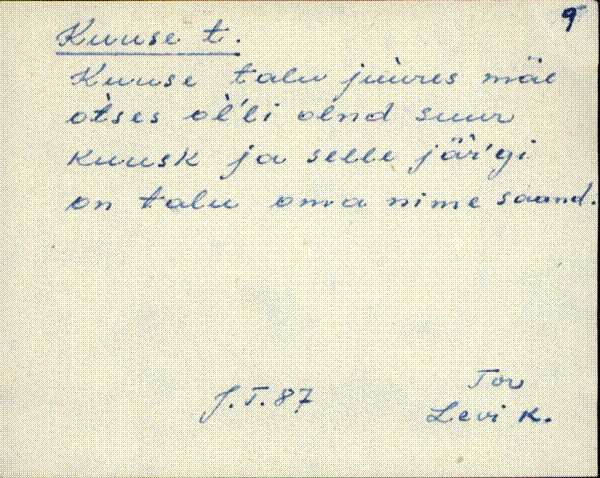 9
Kuuse t.
Kuuse talu jùures mäe
òtses òl̀'li olnd suur
kuusk ja selle jär̀'gi
on talu oma nime saand.
J.T.87
Tor
Levi K.